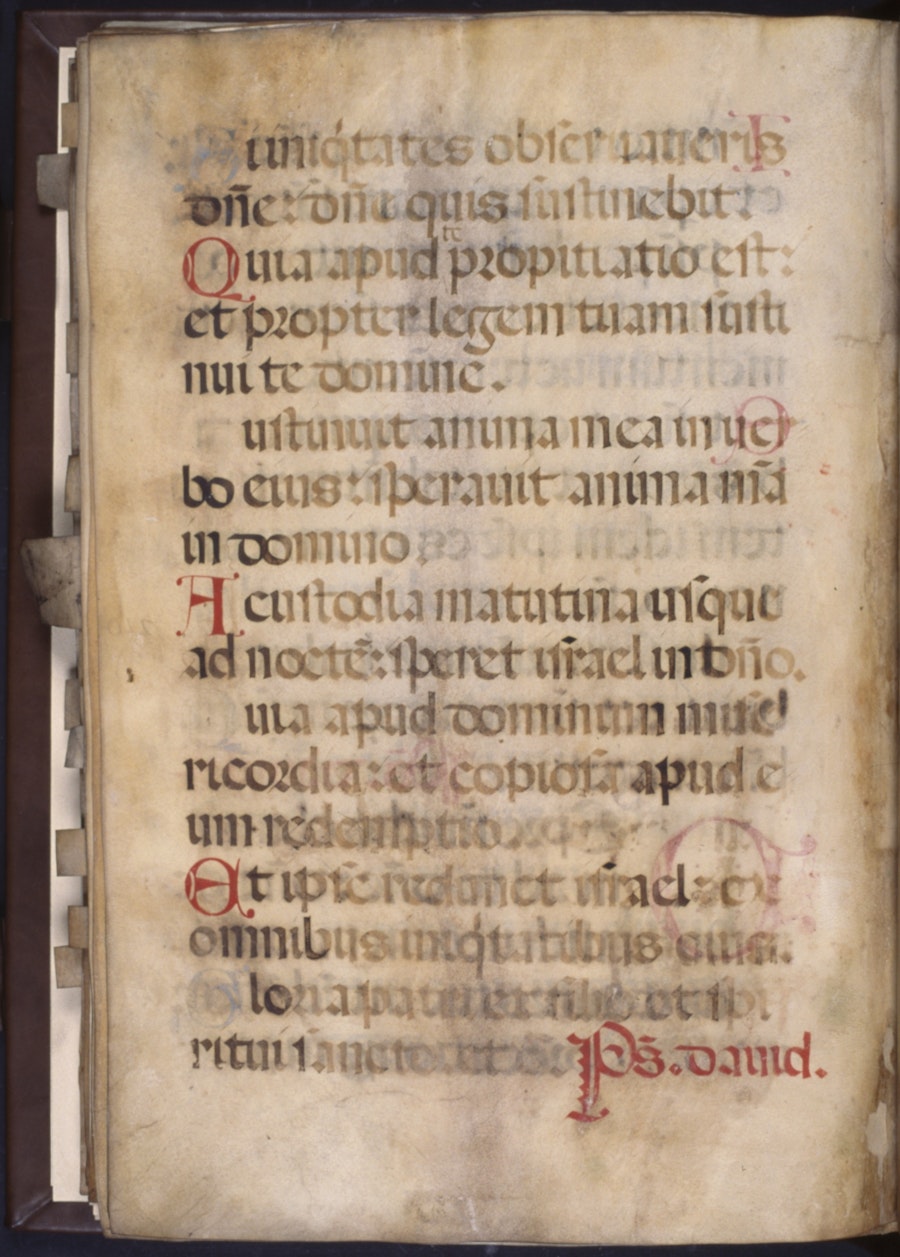 iniq̇tates obseruaueris
dn̄e: dn̄e quis sustinebit:
Quia apud te propitiatio est:
et propter legem tuam susti
nui te domine.
ustinuit anima mea in uer
bo eius: sperauit anima mā
in domino.
A custodia matutina usque
ad noctē: speret isrrael in dn̄o.
uia apud dominum mise
ricordia: et copiosa apud e
um redemptio.
Et ipse redimet isrrael: ex
omnibus iniq̇tatibus eius.
loria patri et filio et spi
ritui sancto.
Ps̄. dauid.